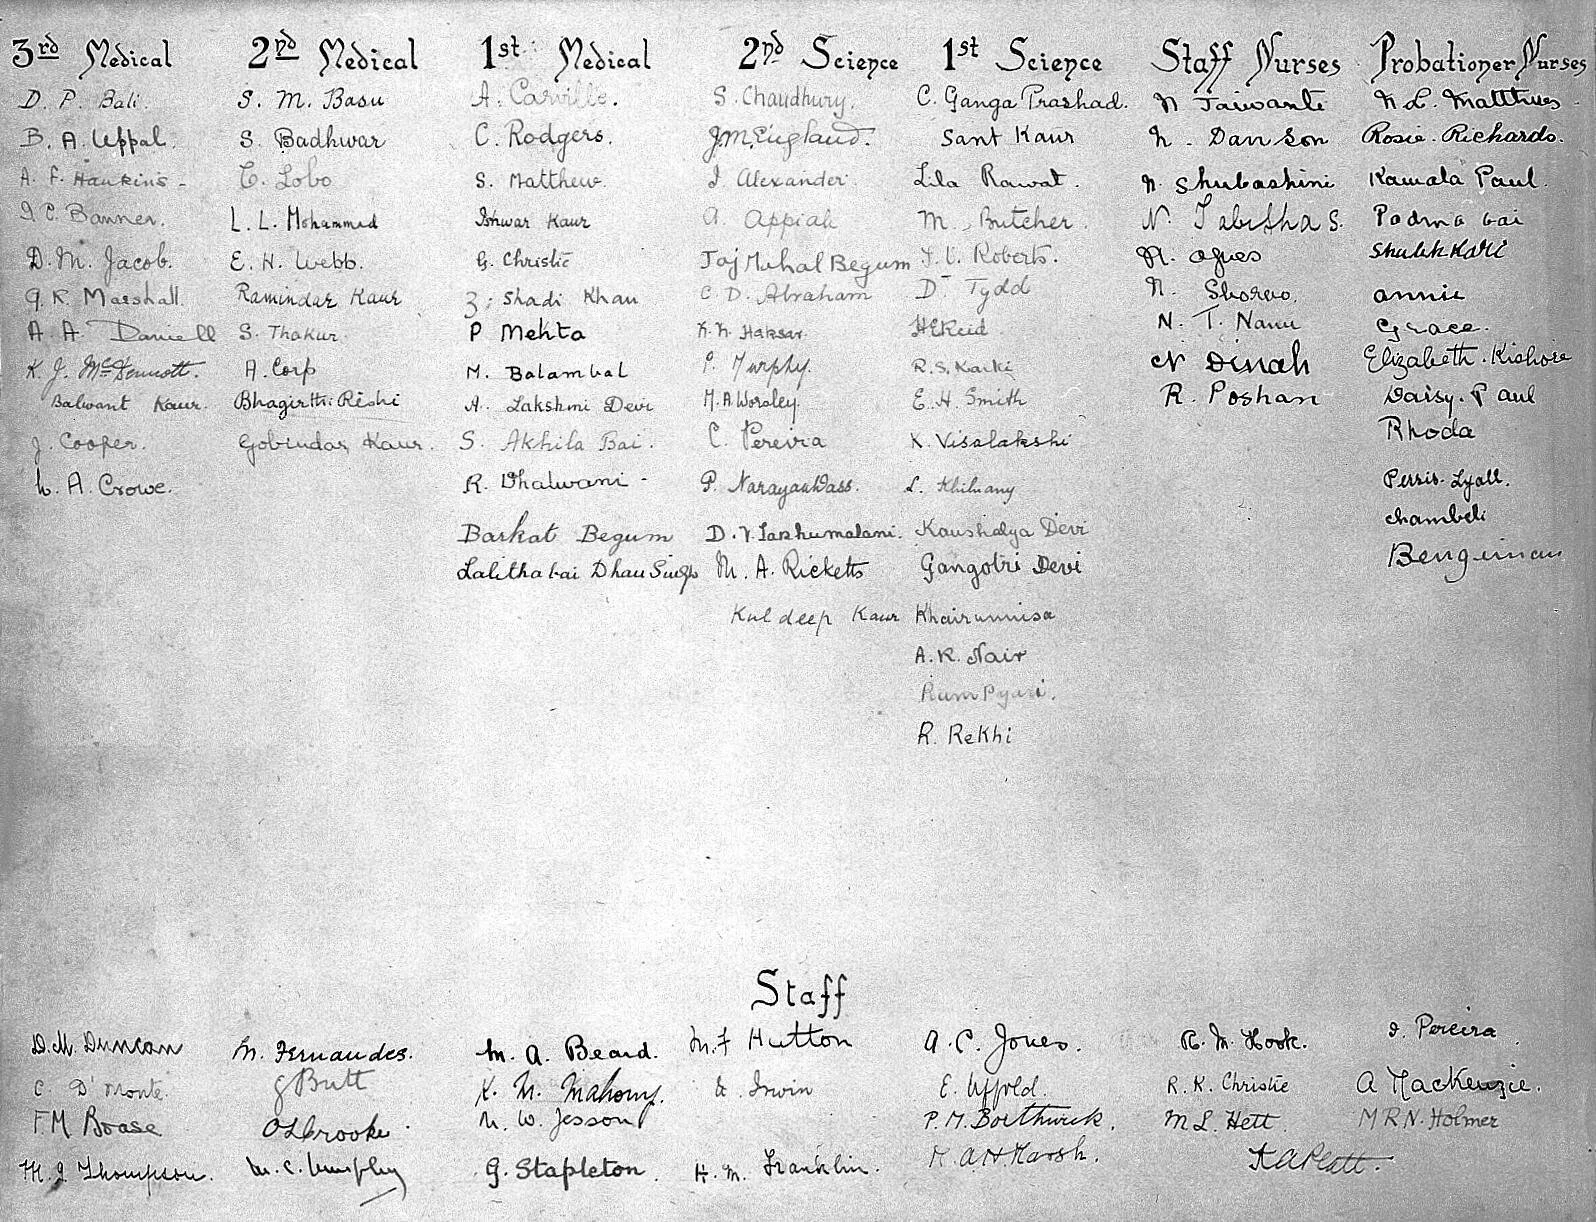 3rd Medical
D. P. Bali.
B. A. Uppal.
A. F. Hankins -
I. C. Banner.
D. M. Jacob.
G. R. Marshall.
A. A. Daniell
K. J. McDermott.
Balwant Kaur.
J. Cooper.
L. A. Crowe.
2nd Medical
S. M. Basu
S. Badhwar
C. Lobo
L. L. Mohammed
E. H. Webb.
Ramindar Kaur
S. Thakur.
A. Corp
Bhagirthi Rishi
Gobindar Kaur.
1st Medical
A. Carville.
C. Rodgers.
S. Matthew.
Ishwar Kaur
G. Christie
Z. Shadi Khan
P Mehta
M. Balambal
A. Lakshmi Devi
S. Akhila Bai.
R. Dhalwani -
Barkat Begum
Lalithabai Dhan Singh
2nd Science
S. Chaudhury.
J. M. England.
I. Alexander.
A. Appiah
Taj Mahal Begum
C. D. Abraham
K. N. Haksar.
P. Murphy.
M. A. Worsley.
C. Pereira
P. Narayandass.
D. V. Lakhumalani.
M. A. Ricketts
Kuldeep Kaur
1st Science
C. Ganga Prashad.
Sant Kaur
Lila Rawat.
M. Butcher.
F. V. Roberts.
D. Tydd
H E Reid
R. S. Karki
E. H. Smith
K. Visalakshi
L. Khilnany
Kaushalya Devi
Gangotri Devi
Khairunnisa
A. K. Nair
Ram Pyari.
R. Rekhi
Staff Nurses
N Jaiwanti
N. Danson
N. Shubashini
N. Tabitha S.
N. Agnes
N.
N. T. Nanu
N Dinah
R. Poshan
Probationer Nurses
N. L. Matthews
Rosie. Richards.
Kamala Paul.
Padma bai
annie
Grace.
Elizabeth. Kishore
Daisy. Paul
Rhoda
Persis. Lyall.
Chambeli
Staff
D. M. Duncan
M. Fernandes.
M. A. Beard.
M. F Hutton
A. C. Jones.
R. M. Hook.
I. Pereira.
C. D'Monte.
G Butt
K. M. Mahony.
E. Irwin
E. Uffold.
R. K. Christie
A MacKenzie.
F M Boase
O L Brooke.
N. W. Jesson
P. M. Borthwick.
M L. Hett.
M R N. Holmer
M. I. Thompson.
M. C. Murphy
G. Stapleton.
H. M. Franklin.
K. A. H. Marsh.
K A Platt.